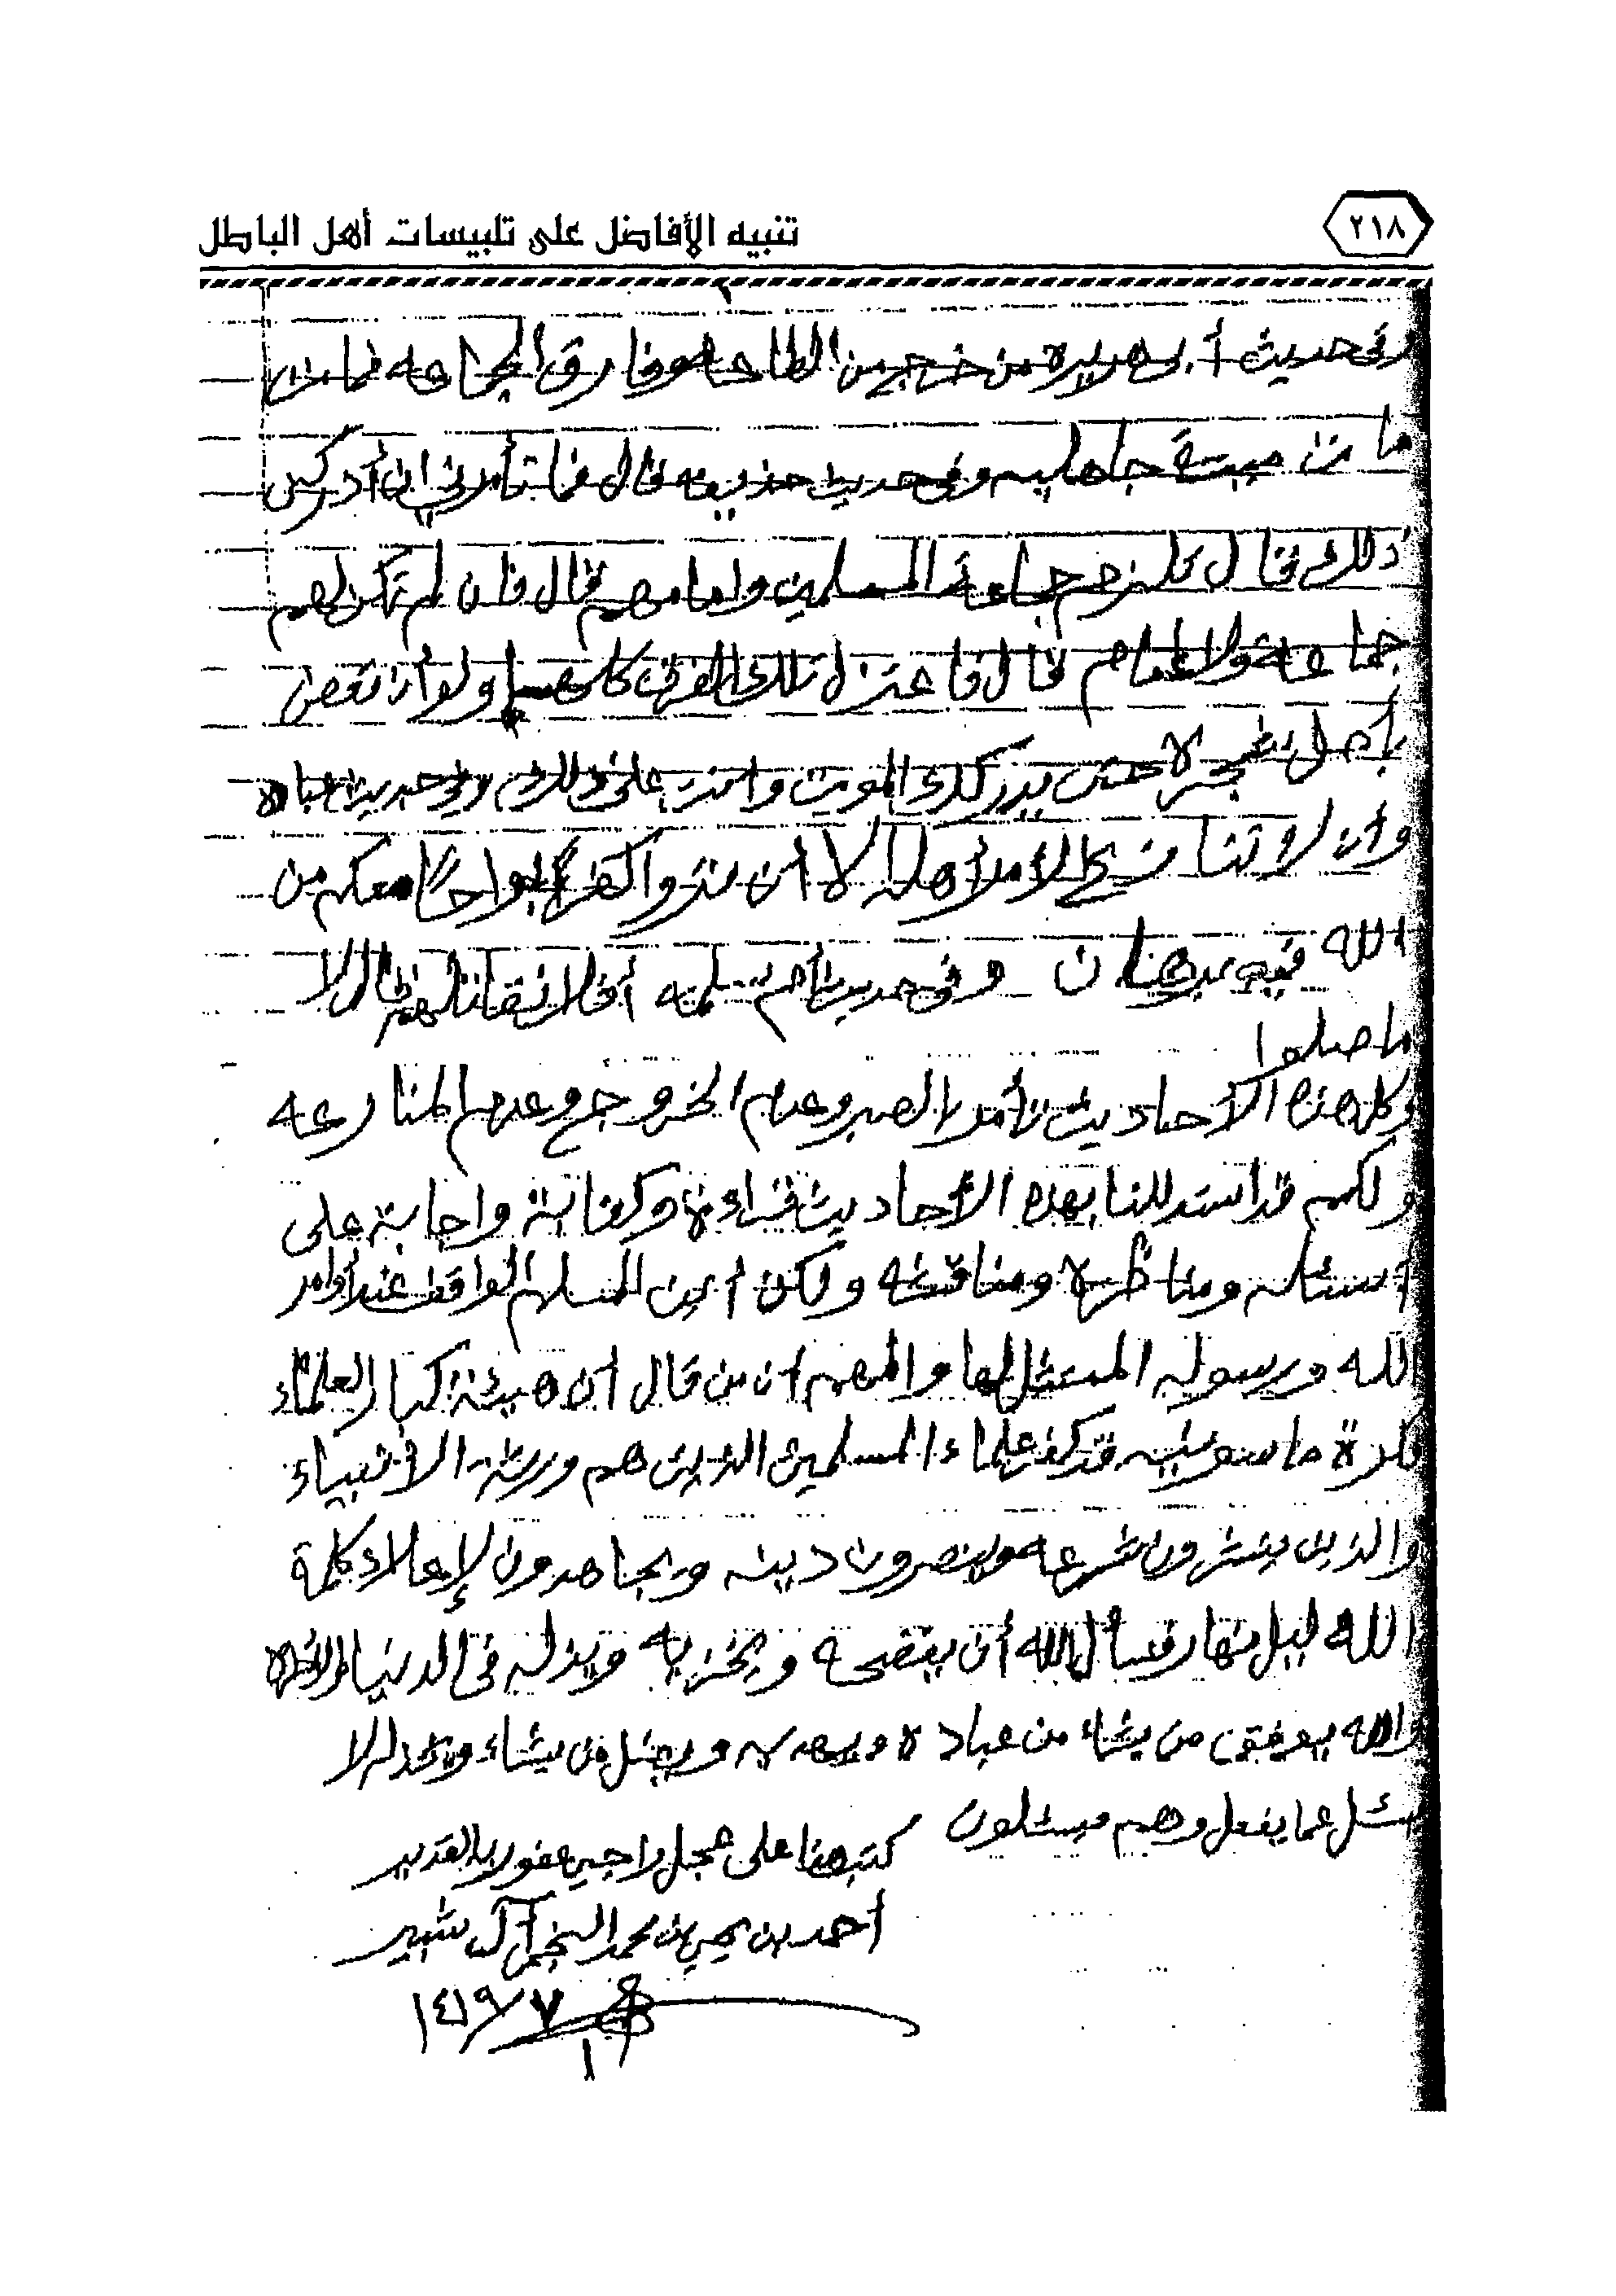 ٢١٨
تنبيه الأفاضل على تلبيسات أهل الباطل
وفي حديث أبي هريرة من خرج من الطاعه وفارق الجماعه فمات
مات ميتة جاهليه وفي حديث حذيفه قال فما تأمرني إن أدركني
ذلك فقال تلزم جماعة المسلمين وإمامهم قال فان لم تكن لهم
جماعه ولا إمام قال فاعتزل تلك الفرق كلها ولو أن تعض
بأصل شجرة حتى يدركك الموت وانت على ذلك وفي حديث عباده
وان لا تنازع الأمر أهله إلا أن تروا كفراً بواحاً معكم من
الله فيه برهان وفي حديث أم سلمه أفلا نقاتلهم قال لا
ما صلوا
وكل هذه الأحاديث تأمر بالصبر وعدم الخروج وعدم المنازعه
ولكم قد استدللنا بهذه الأحاديث قراءة وكتابة واجابة على
أسئله ومناظرة ومناقشه ولكن أين المسلم الواقف عند أوامر
الله ورسوله الممتثل لها والمهم أن من قال أن هيئة كبار العلماء
ماسونيه قد كفر علماء المسلمين الذين هم ورثة الانبياء
والذين ينشرون شرعه وينصرون دينه ويجاهدون لإعلاء كلمة
الله ليل نهار فنسأل الله أن يفضحه ويخزيه ويذله في الدنيا والآخرة
والله يوفق من يشاء من عباده ويهديه ويضل من يشاء ويخذله لا
يسئل عما يفعل وهم يسئلون
كتب هذا على عجل راجي عفو ربه القدير
أحمد بن يحيى بن محمد النجمي آل شبير
١٤١٩/٧/١